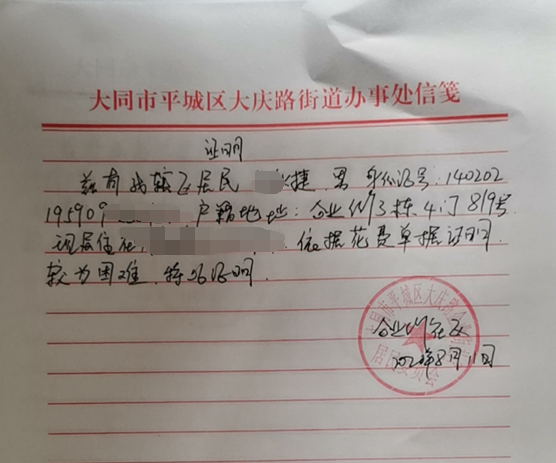 大同市平城区大庆路街道办事处信笺
证明
兹有我辖区居民 捷 男 身份证号:140202
195909 户籍地址:企业 13栋4门819号
现居住在, 依据花费单据证明
较为困难,特此证明.
企业 社区
8月11日